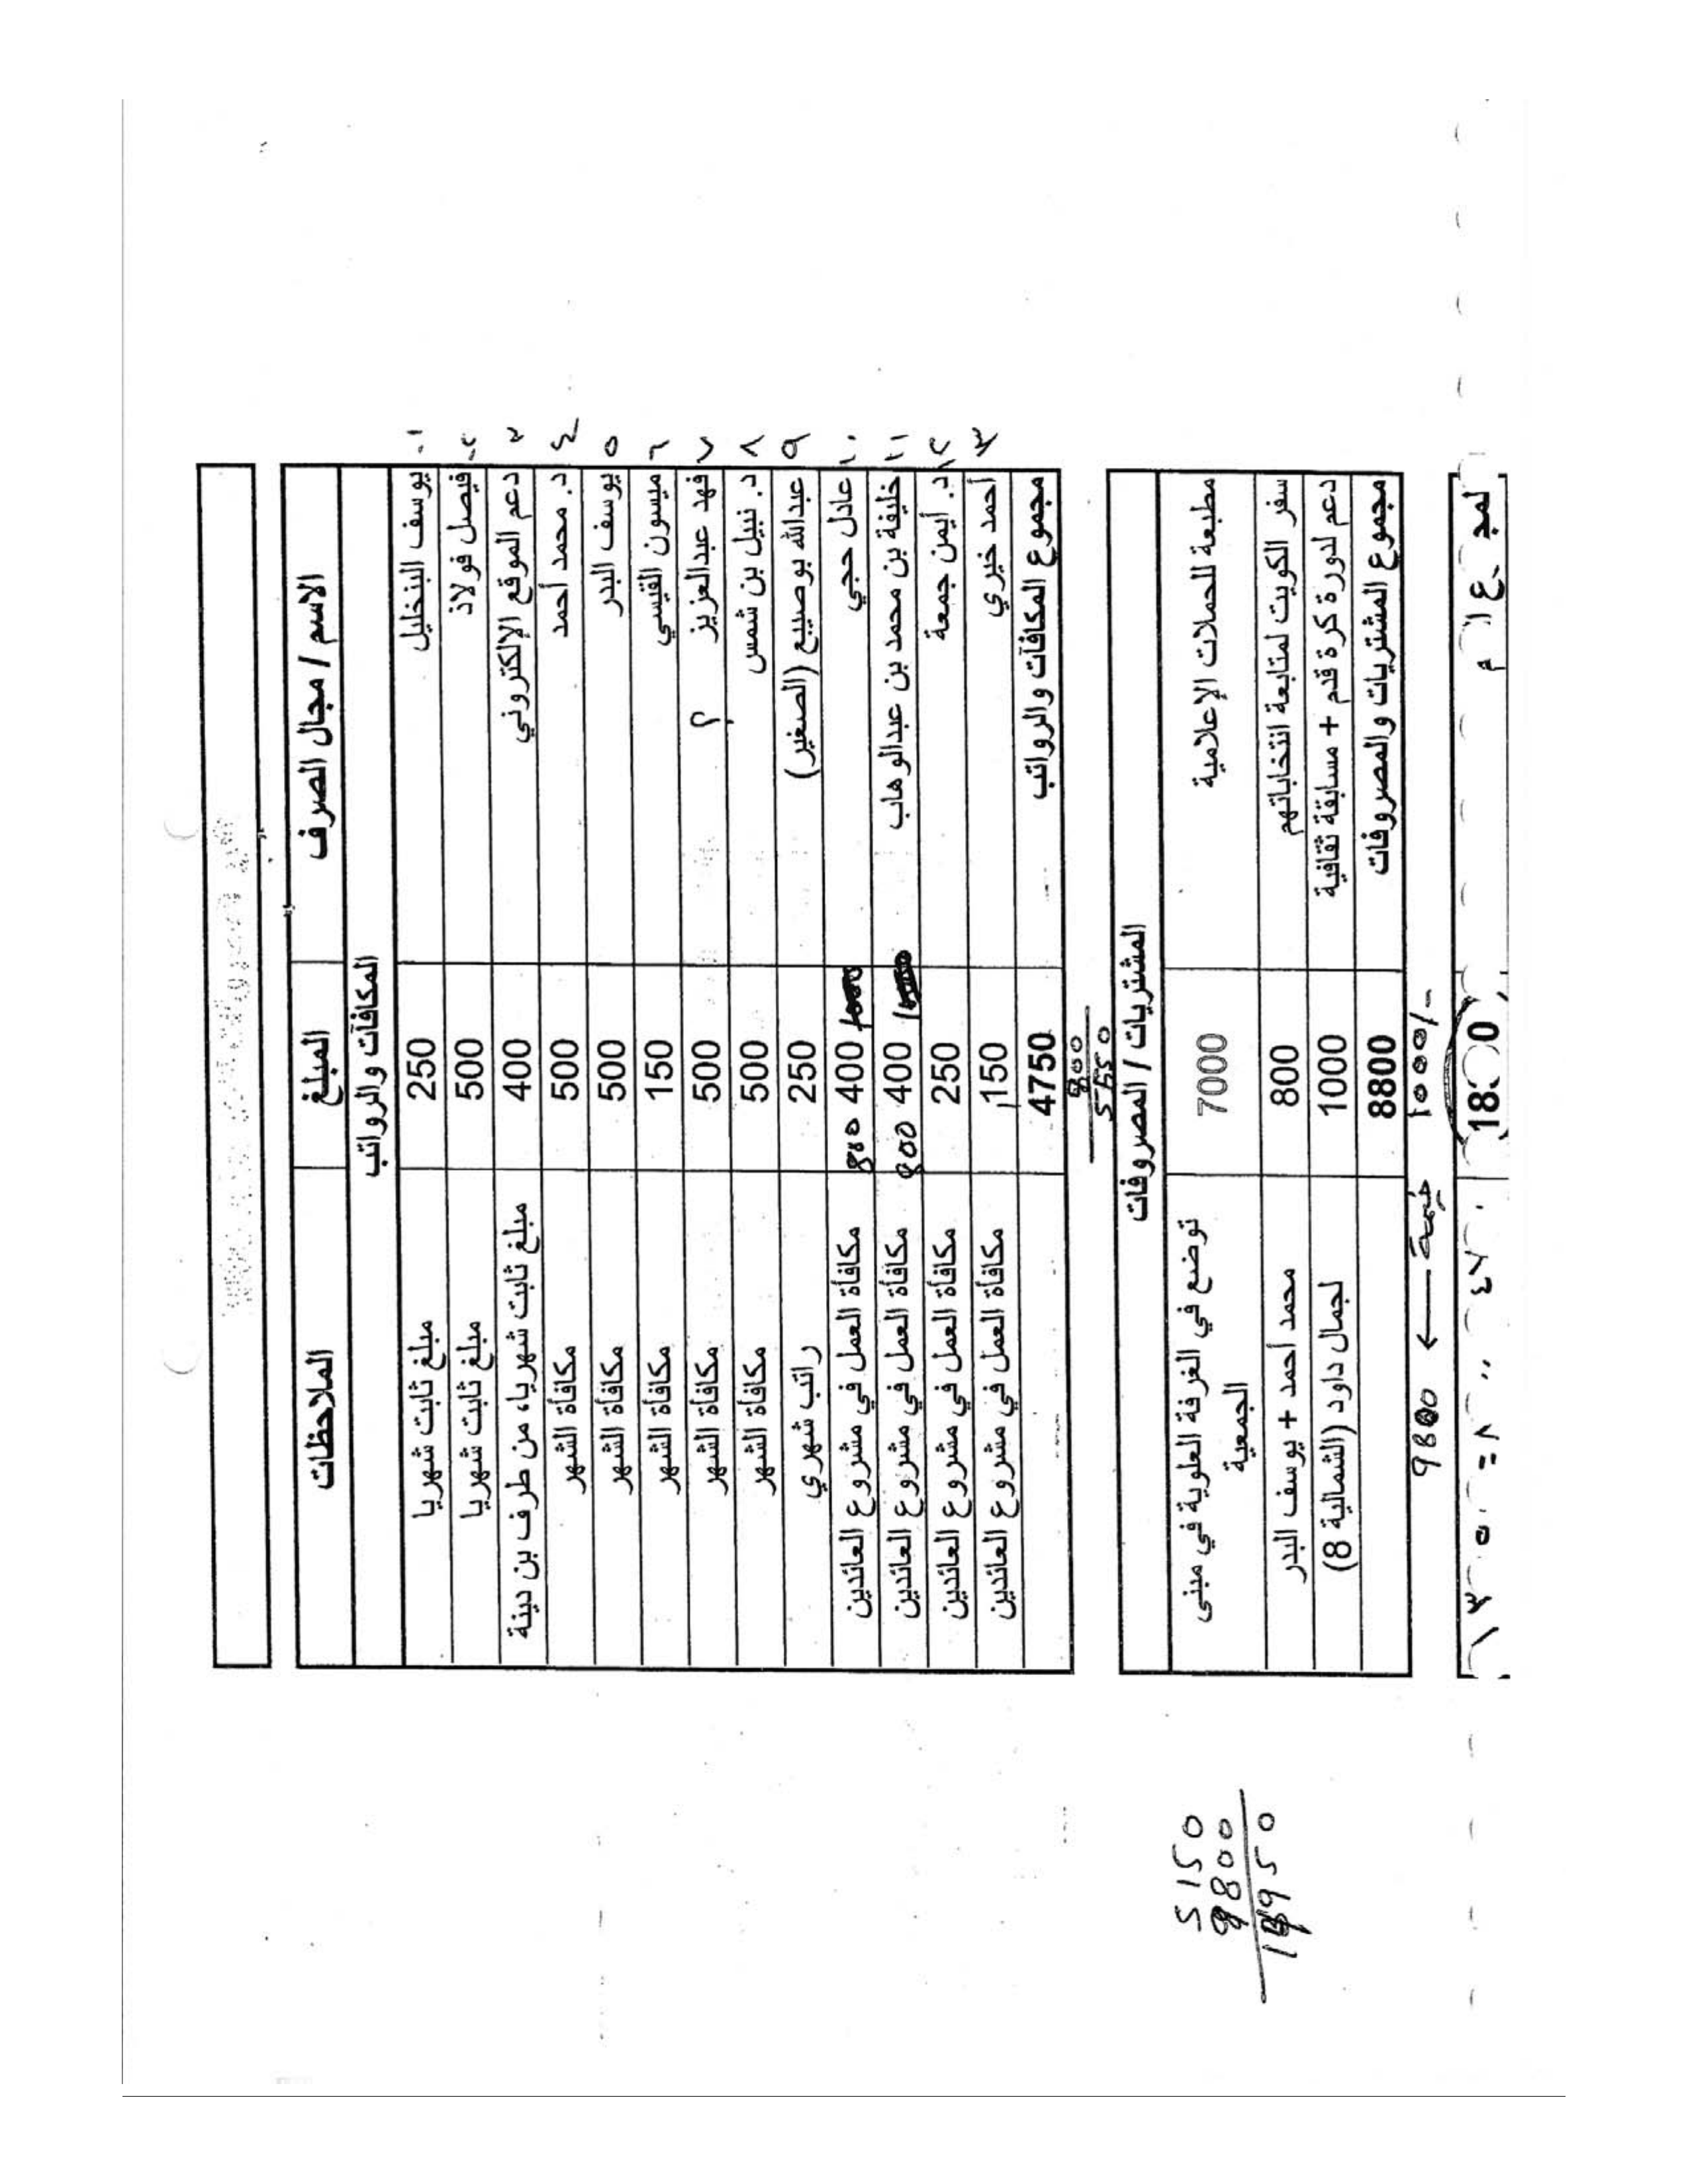 الاسم / مجال الصرف المبلغ الملاحظات
المكافآت والرواتب
١- يوسف البنخليل 250 مبلغ ثابت شهريا
٢- فيصل فولاذ 500 مبلغ ثابت شهريا
٣ دعم الموقع الإلكتروني 400 مبلغ ثابت شهريا، من طرف بن دينة
٤ د. محمد أحمد 500 مكافأة الشهر
٥ يوسف البدر 500 مكافأة الشهر
٦ ميسون القيسي 150 مكافأة الشهر
٧ فهد عبدالعزيز 500 مكافأة الشهر
٨ د. نبيل بن شمس 500 مكافأة الشهر
٩ عبدالله بوصيبع (الصغير) 250 راتب شهري
١٠ عادل حجي 400 800 مكافأة العمل في مشروع العائدين
١١ خليفة بن محمد بن عبدالوهاب 400 800 مكافأة العمل في مشروع العائدين
١٢ د. أيمن جمعة 250 مكافأة العمل في مشروع العائدين
١٣ أحمد خيري 150 مكافأة العمل في مشروع العائدين
مجموع المكافآت والرواتب 4750
800
5550
المشتريات / المصروفات
مطبعة للحملات الإعلامية 7000 توضع في الغرفة العلوية في مبنى
الجمعية
سفر الكويت لمتابعة انتخاباتهم 800 محمد أحمد + يوسف البدر
دعم لدورة كرة قدم + مسابقة ثقافية 1000 لجمال داود (الشمالية 8)
مجموع المشتريات والمصروفات 8800
1000/- 9800
5150
9800
14950